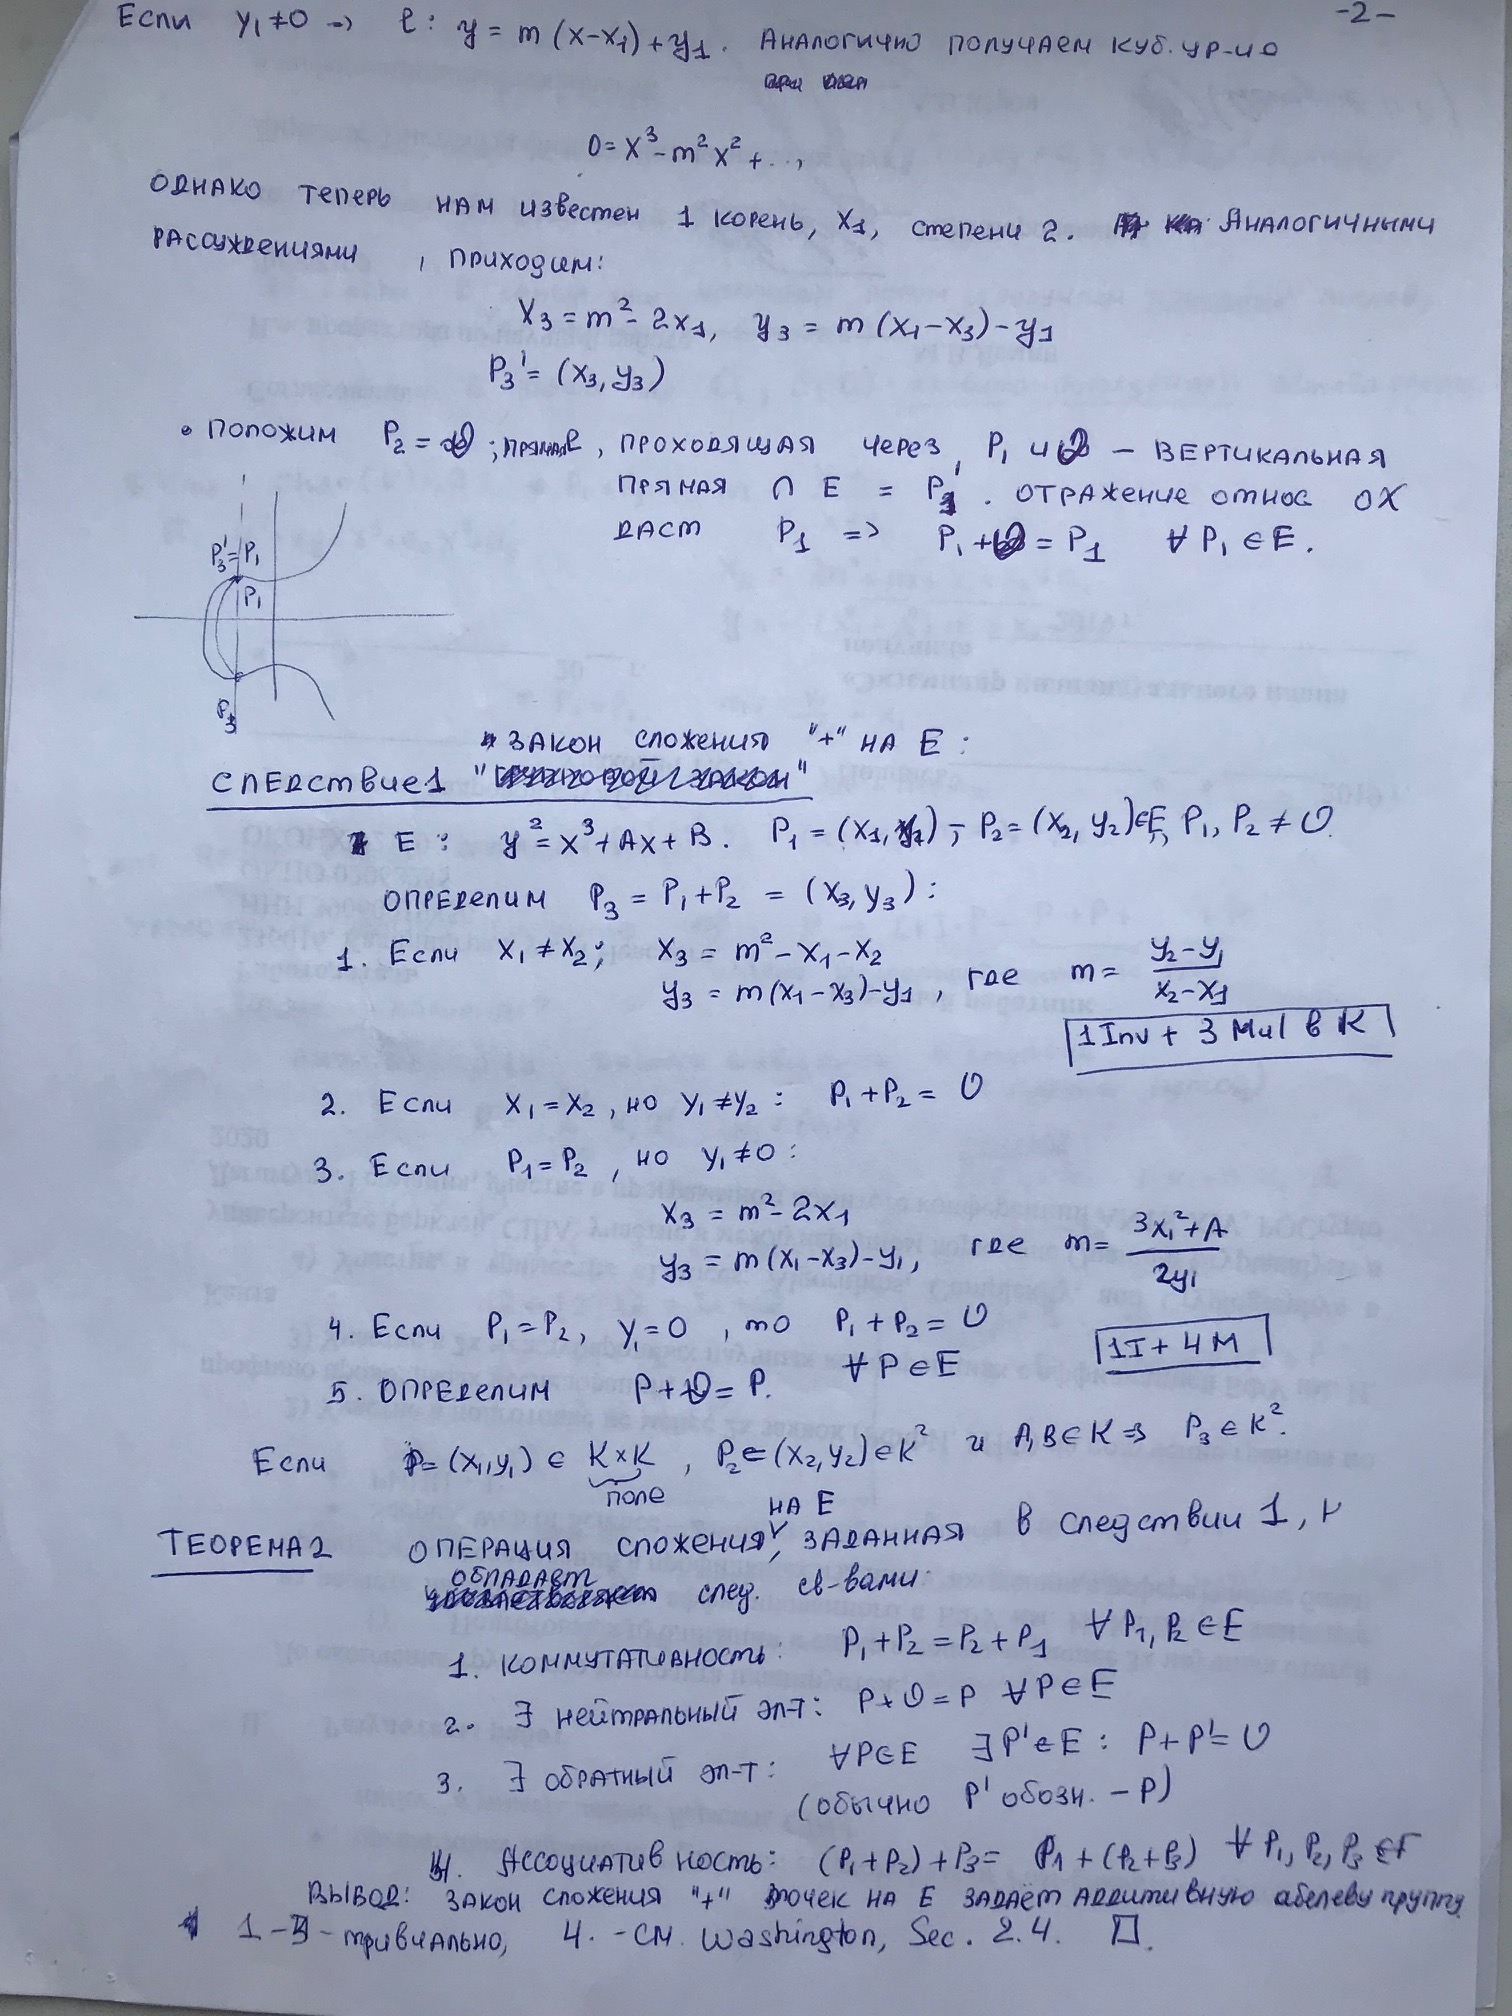 -2-
Если y₁≠0 → ℓ: y = m(x-x₁)+y₁. Аналогично получаем куб. ур-ие
0 = x³-m²x²+...,
однако теперь нам известен 1 корень, x₁, степени 2. Аналогичными
рассуждениями, приходим:
x₃ = m²-2x₁, y₃ = m(x₁-x₃)-y₁
P₃' = (x₃, y₃)
• Положим P₂ = O; прямая ℓ, проходящая через P₁ и O - вертикальная
прямая ∩ E = P₃'. Отражение относ OX
даст P₁ => P₁+O = P₁ ∀ P₁ ∈ E.
P₃'=P₁
P₁
P₃
Закон сложения "+" на E:
Следствие 1
E: y² = x³+Ax+B. P₁ = (x₁, y₁), P₂ = (x₂, y₂) ∈ E, P₁, P₂ ≠ O.
Определим P₃ = P₁+P₂ = (x₃, y₃):
1. Если x₁ ≠ x₂; x₃ = m²-x₁-x₂
y₃ = m(x₁-x₃)-y₁, где m = (y₂-y₁)/(x₂-x₁)
1 Inv + 3 Mul в K
2. Если x₁=x₂, но y₁≠y₂: P₁+P₂ = O
3. Если P₁=P₂, но y₁≠0:
x₃ = m²-2x₁
y₃ = m(x₁-x₃)-y₁, где m = (3x₁²+A)/(2y₁)
4. Если P₁=P₂, y₁=0, то P₁+P₂ = O
1I+4M
5. Определим P+O = P. ∀ P ∈ E
Если P = (x₁,y₁) ∈ K×K, P₂ = (x₂,y₂) ∈ K² и A,B ∈ K => P₃ ∈ K².
поле
Теорема 2 Операция сложения на E, заданная в следствии 1,
обладает след. св-вами:
1. Коммутативность: P₁+P₂ = P₂+P₁ ∀ P₁, P₂ ∈ E
2. ∃ нейтральный эл-т: P+O = P ∀P∈E
3. ∃ обратный эл-т: ∀P∈E ∃P'∈E: P+P' = O
(обычно P' обозн. -P)
4. Ассоциативность: (P₁+P₂)+P₃ = P₁+(P₂+P₃) ∀ P₁, P₂, P₃ ∈ E
Вывод: закон сложения "+" точек на E задаёт аддитивную абелеву группу
1-3 - тривиально, 4. - см. Washington, Sec. 2.4. □.